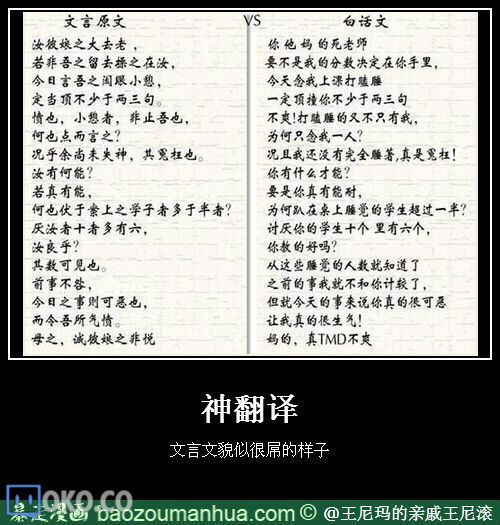 文言原文 VS 白话文
汝彼娘之大去老，
若非吾之留去操之在汝，
今日言吾之闺眼小憩，
定当顶不少于两三句。
愤也，小憩者，非止吾也，
何也点而言之？
况乎余尚未失神，其冤枉也。
汝有何能？
若真有能，
何也伏于案上之学子者多于半者？
厌汝者十者多有六，
汝良乎？
其数可见也。
前事不咎，
今日之事则可恶也，
而令吾所气愤。
母之，诚彼娘之非悦
你他妈的死老师
要不是我的分数决定在你手里，
今天念我上课打瞌睡
一定顶撞你不少于两三句
不爽！打瞌睡的又不只有我，
为何只念我一人？
况且我还没有完全睡著，真是冤枉！
你有什么才能？
要是你真有能耐，
为何趴在桌上睡觉的学生超过一半？
讨厌你的学生十个里有六个，
你教的好吗？
从这些睡觉的人数就知道了
之前的事我就不和你计较了，
但就今天的事来说你真的很可恶
让我真的很生气！
妈的，真TMD不爽
神翻译
文言文貌似很屌的样子
MOKO.CO
暴走漫画 baozoumanhua.com @王尼玛的亲戚王尼滚